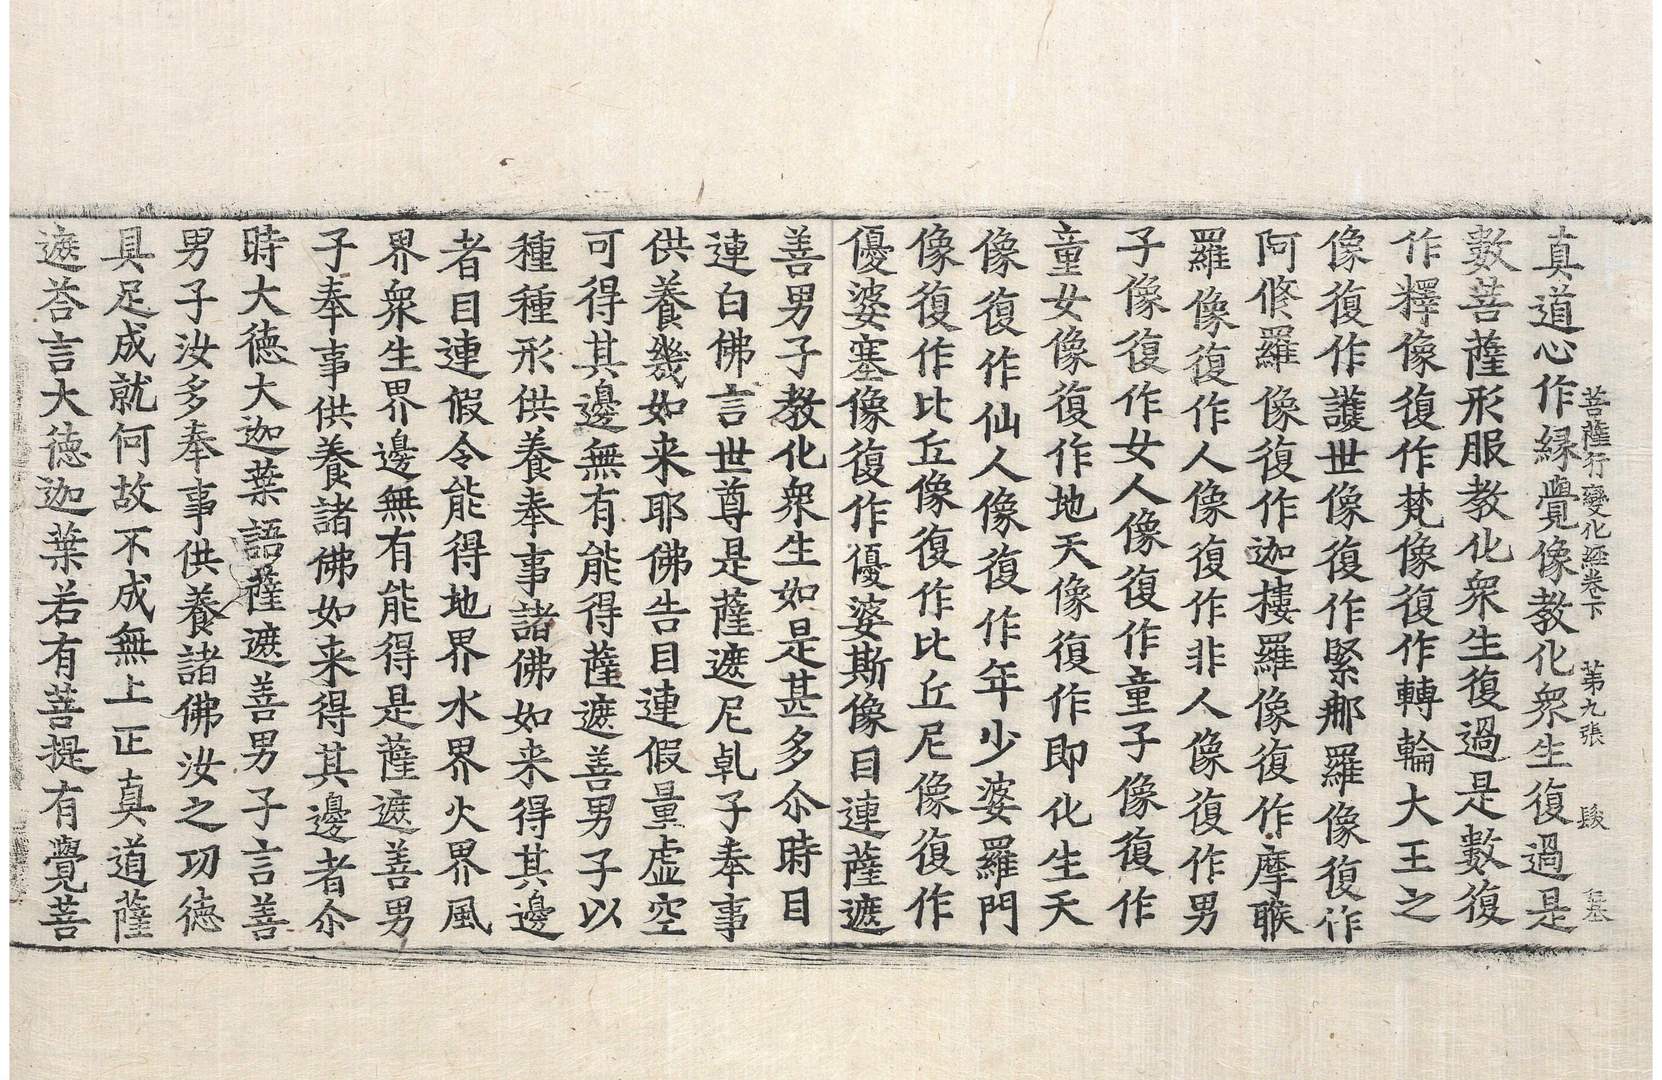 菩薩行變化經卷下 苐九張 駿
真道心作緣覺像教化衆生復過是
數菩薩形服教化衆生復過是數復
作釋像復作梵像復作轉輪大王之
像復作護世像復作緊那羅像復作
阿修羅像復作迦樓羅像復作摩睺
羅像復作人像復作非人像復作男
子像復作女人像復作童子像復作
童女像復作地天像復作即化生天
像復作仙人像復作年少婆羅門
像復作比丘像復作比丘尼像復作
優婆塞像復作優婆斯像目連薩遮
善男子教化衆生如是甚多尒時目
連白佛言世尊是薩遮尼乹子奉事
供養幾如来耶佛告目連假量虛空
可得其邊無有能得薩遮善男子以
種種形供養奉事諸佛如来得其邊
者目連假令能得地界水界火界風
界衆生界邊無有能得是薩遮善男
子奉事供養諸佛如来得其邊者尒
時大德大迦葉語薩遮善男子言善
男子汝多奉事供養諸佛汝之功德
具足成就何故不成無上正真道薩
遮荅言大德迦葉若有菩提有覺菩